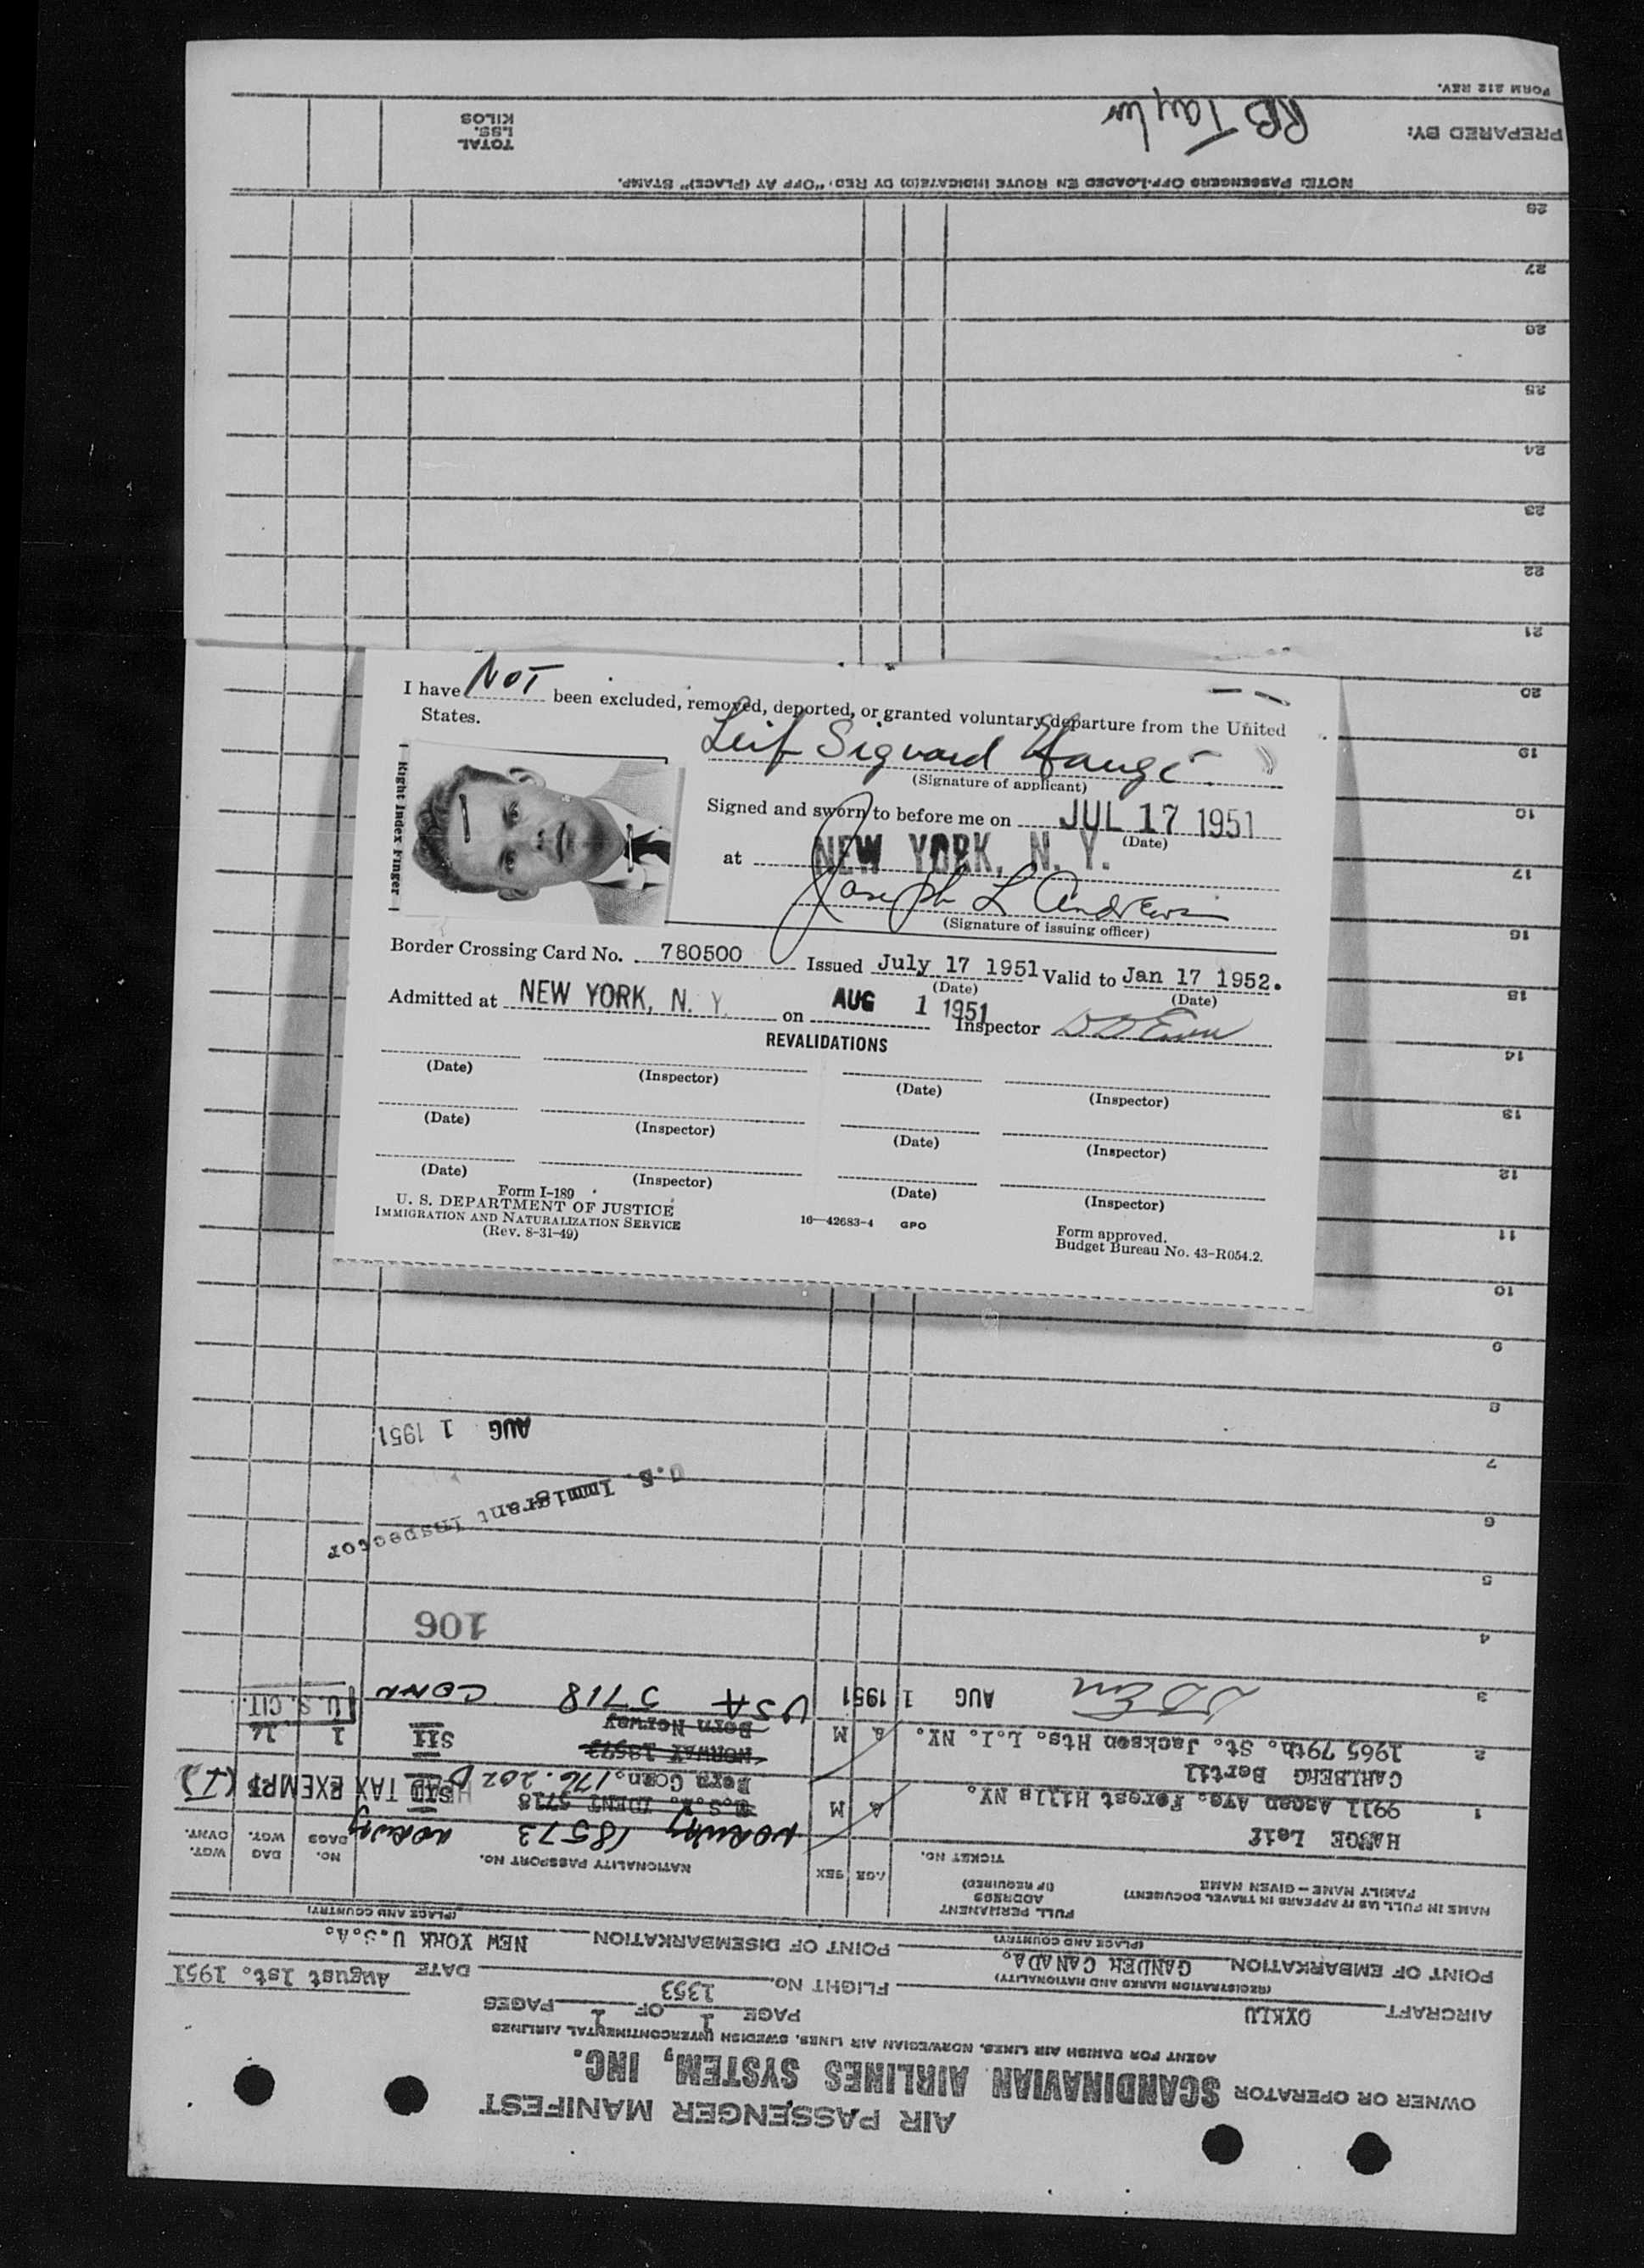 I have NOT been excluded, removed, deported, or granted voluntary departure from the United
States.
Leif Sigvard Hauge
(Signature of applicant)
Right Index Finger
Signed and sworn to before me on JUL 17 1951
(Date)
at NEW YORK, N. Y.
Joseph L Andrews
(Signature of issuing officer)
Border Crossing Card No. 780500 Issued July 17 1951 Valid to Jan 17 1952.
(Date) (Date)
Admitted at NEW YORK, N. Y. on AUG 1 1951 Inspector
REVALIDATIONS
(Date) (Inspector) (Date) (Inspector)
(Date) (Inspector) (Date) (Inspector)
(Date) (Inspector) (Date) (Inspector)
Form I-189
U. S. DEPARTMENT OF JUSTICE
IMMIGRATION AND NATURALIZATION SERVICE
(Rev. 8-31-49)
16—42683-4 GPO
Form approved.
Budget Bureau No. 43-R054.2.
AIR PASSENGER MANIFEST
OWNER OR OPERATOR SCANDINAVIAN AIRLINES SYSTEM, INC.
AGENT FOR DANISH AIR LINES, NORWEGIAN AIR LINES, SWEDISH INTERCONTINENTAL AIRLINES
PAGE 1 OF 1 PAGES
AIRCRAFT OYKLU FLIGHT No. 1353 DATE August 1st. 1951
(REGISTRATION MARKS AND NATIONALITY)
POINT OF EMBARKATION GANDER CANADA. POINT OF DISEMBARKATION NEW YORK U.S.A.
(PLACE AND COUNTRY) (PLACE AND COUNTRY)
NAME IN FULL (AS IT APPEARS IN TRAVEL DOCUMENT)
FAMILY NAME — GIVEN NAME
FULL PERMANENT
ADDRESS
(IF REQUIRED)
TICKET NO.
AGE SEX NATIONALITY PASSPORT NO. No. BAGS BAG WGT. OVWT. WGT.
HAUGE Leif NORWAY 18573 NORWAY
1 9911 Ascan Ave. Forest Hills NY. A M U.S.A. IDENT 5718
Born Conn. HEAD TAX EXEMPT
CARLBERG Bertil NORWAY 18573
2 1965 79th. St. Jackson Hts. L.I. NY. A M Born Norway SII 1 14
3 AUG 1 1951 USA 5718 CONN U.S. CIT.
4
106
5
6
U.S. Immigrant Inspector
7
AUG 1 1951
8
9
10
11
12
13
14
15
16
17
18
19
20
21
22
23
24
25
26
27
28
NOTE: PASSENGERS OFF-LOADED EN ROUTE INDICATE(D) BY RED, "OFF AT (PLACE)" STAMP.
PREPARED BY: RB Taylor
TOTAL
LSS.
KILOS
FORM 212 REV.